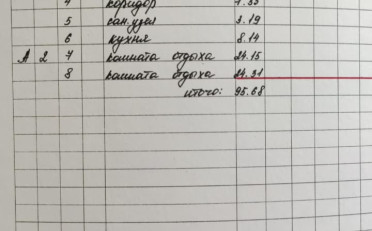 4 коридор 7.55
5 сан. узел 3.19
6 кухня 8.14
А 2 7 комната отдыха 24.15
8 комната отдыха 24.21
итого: 95.68